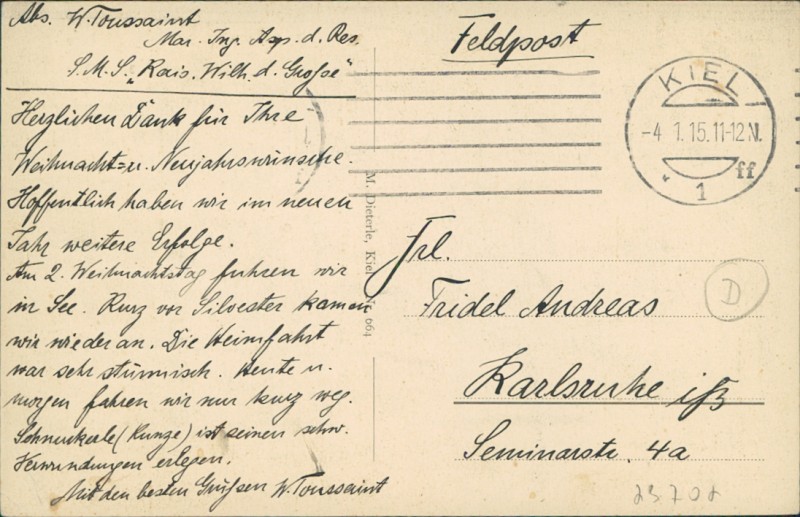 Abs. W. Toussaint
Mar. Ing. Asp. d. Res.
S.M.S. „Kais. Wilh. d. Große"
Herzlichen Dank für Ihre
Weihnacht= u. Neujahrswünsche.
Hoffentlich haben wir im neuen
Jahr weitere Erfolge.
Am 2. Weihnachtstag fuhren wir
in See. Kurz vor Silvester kamen
wir wieder an. Die Heimfahrt
war sehr stürmisch. Heute u.
morgen fahren wir nur kurz weg.
(Kunze) ist seinen schw.
Verwundungen erlegen.
Mit den besten Grüßen W. Toussaint
M. Dieterle, Kiel
064
Feldpost
KIEL
-4 1.15.11-12 N.
* 1 ff
Frl.
Fridel Andreas
D
Karlsruhe i/B
Seminarstr. 4a